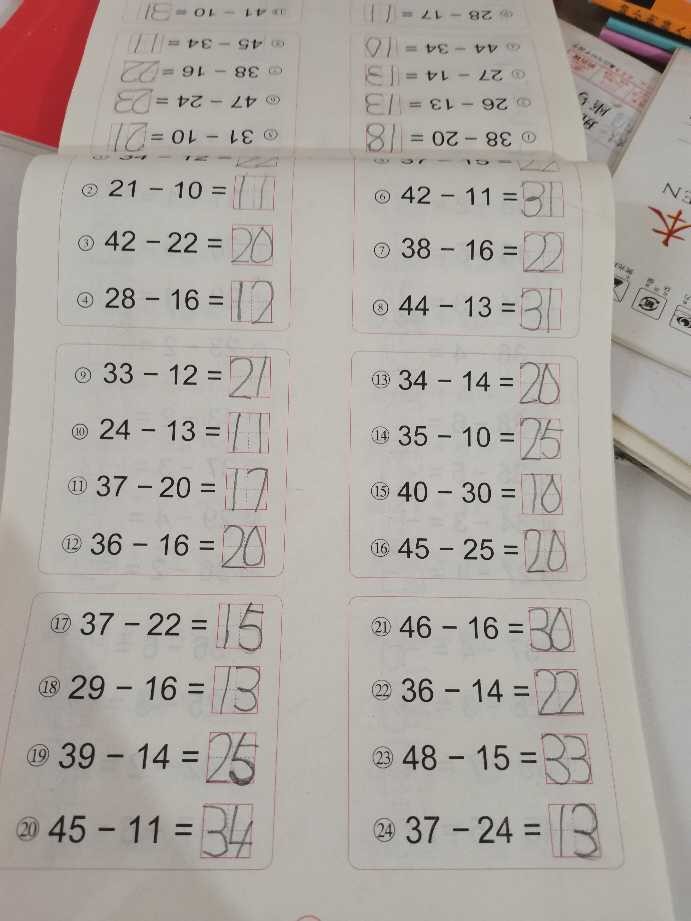 ② 21 − 10 = 11
③ 42 − 22 = 20
④ 28 − 16 = 12
⑥ 42 − 11 = 31
⑦ 38 − 16 = 22
⑧ 44 − 13 = 31
⑨ 33 − 12 = 21
⑩ 24 − 13 = 11
⑪ 37 − 20 = 17
⑫ 36 − 16 = 20
⑬ 34 − 14 = 20
⑭ 35 − 10 = 25
⑮ 40 − 30 = 10
⑯ 45 − 25 = 20
⑰ 37 − 22 = 15
⑱ 29 − 16 = 13
⑲ 39 − 14 = 25
⑳ 45 − 11 = 34
㉑ 46 − 16 = 30
㉒ 36 − 14 = 22
㉓ 48 − 15 = 33
㉔ 37 − 24 = 13
① 38 − 20 = 18
② 26 − 13 = 13
③ 27 − 14 = 13
④ 44 − 34 = 10
⑤ 31 − 10 = 21
⑥ 47 − 24 = 23
⑦ 38 − 16 = 22
⑧ 45 − 34 = 11
28 − 17 = 11
41 − 10 = 31